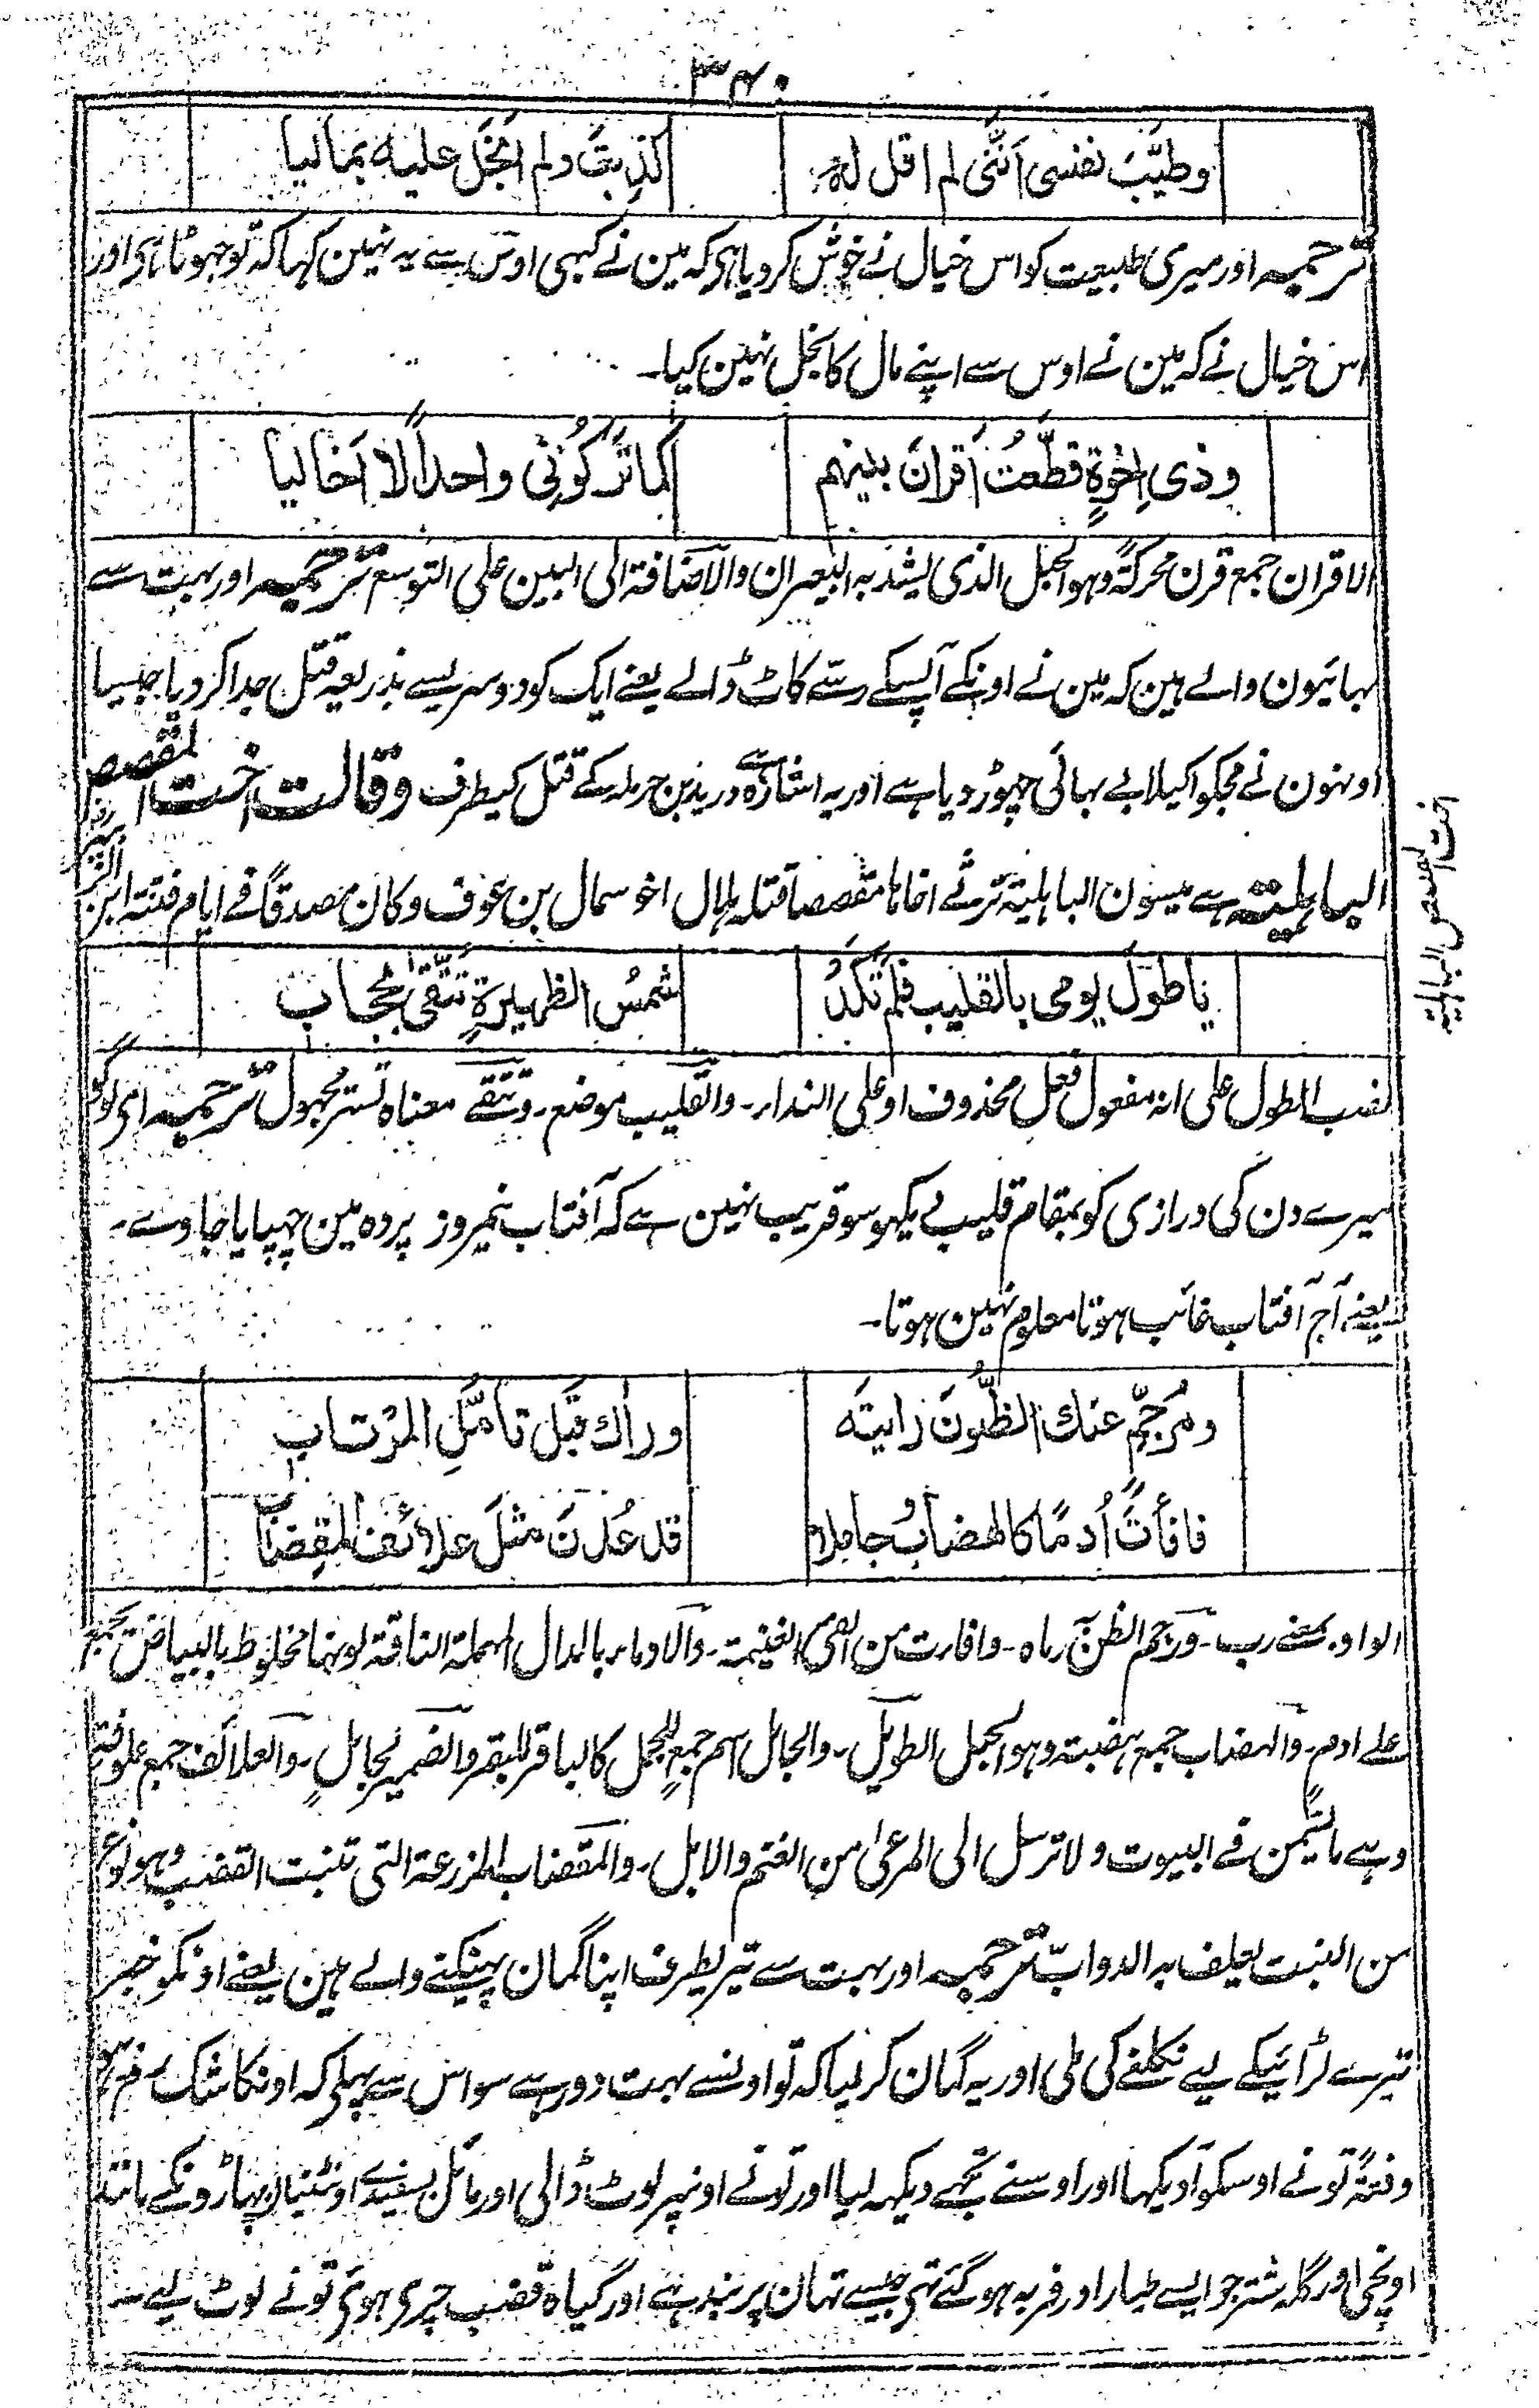 ۳۴۰
وطيّبَ نفسى اَنَّنى لم اقل له كذبتَ ولم اَبخَل عليه بماليا
ترجمہ اور میری طبیعت کو اس خیال نے خوش کردیا ہی کہ مین نے کبہی اوس سے یہ نہین کہا کہ تو جہوٹا ہی اور
اس خیال نے کہ مین نے اوس سے اپنے مال کا بخل نہین کیا۔
وذى اِخوةٍ قطّعتُ اَقرانَ بينهم كما تركُونى واحداً لا اَخا ليا
الاقران جمع قرن محرکۃً وہو الحبل الذی یشد بہ البعیران والاضافۃ الی البین علی التوسع ترجمہ اور بہت سے
بہائیون والے ہین کہ مین نے اونکے آپسکے رسّے کاٹ ڈالے یعنے ایک کو دوسریسے بذریعہ قتل جدا کردیا جیسا
اونہون نے مجکو اکیلا بے بہائی چہوڑ دیا ہے اور یہ اشارہ ہے درید بن حرملہ کے قتل کیطرف وقالت اخت المقصص
الباہلیۃ ہے میسون الباہلیۃ ترثے اخاہا مقصصا قتلہ ہلال اخو سمال بن عوف وکان مصدقاً فے ایام فتنۃ ابن الزبیر
اخت المقصص الباہلیۃ
يا طولَ يومى بالقليب فلم تَكَدْ شمسُ الظهيرةِ تُتَّقىٰ بحجاب
نصب الطول علی انہ مفعول فعل محذوف او علی النداء۔ والقلیب موضع۔ وتتقے معناہ تستر مجہول ترجمہ ای لوگو
میرے دن کی درازی کو بمقام قلیب دیکہو سو قریب نہین ہے کہ آفتاب نیمروز پردہ مین چہپایا جاوے۔
یعنے آج آفتاب غائب ہوتا معلوم نہین ہوتا۔
ومُرجِّمٍ عنك الظُّنونَ رايتَه وراٰك قبل تامّلِ المرتاب
فافأتَ اُدمًا كالهضاب وجاملا قد عُدنَ مثلَ علائف المِقضاب
الواو بمعنے رب۔ ورجم الظن رماہ۔ وافاءت من الفئ الغنیمۃ۔ والادماء بالدال المہملۃ الناقۃ لونہا مخلوط بالبیاض تجمع
علے ادم۔ والہضاب جمع ہضبۃ وہو الجبل الطویل۔ والجامل اسم جمعٍ للجمل کالباقر للبقر والضمیر لجاملٍ۔ والعلائف جمع علوفۃ
وہے ما یسمن فے البیوت ولا ترسل الی المرعیٰ من الغنم والابل۔ والمقضاب المزرعۃ التی تنبت القضب وہو نوع
من النبت یعلف بہ الدوابّ ترجمہ اور بہت سے تیریطرف اپنا گمان پہینکنے والے ہین یعنے اونکو خبر
تیرے لڑائیکے لیے نکلنے کی ملی اور یہ گمان کرلیا کہ تو اونسے بہت دور ہے سو اس سے پہلی کہ اونکا شک رفع ہو
دفعۃً تونے اوسکو آدیکہا اور اوسنے تجہے دیکہہ لیا اور تونے اونپر لوٹ ڈالی اور مائل بسفیدی اونٹنیان پہاڑونکے مانند
اونچی اور گلہ شتر جو ایسے طیار اور فربہ ہوگئے تہی جیسے تہان پر بندہے اور گیاہ قضب چری ہوئی تونے لوٹ لیے